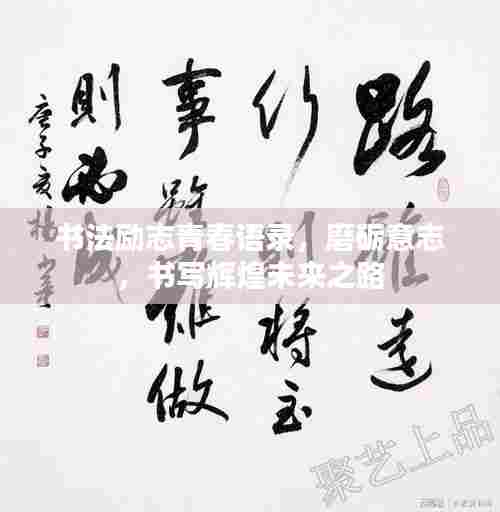 路雖遠
行則將至
事雖難做
則必成
庚子夏
书法励志青春语录，磨砺意志
，书写辉煌未来之路
聚艺上品